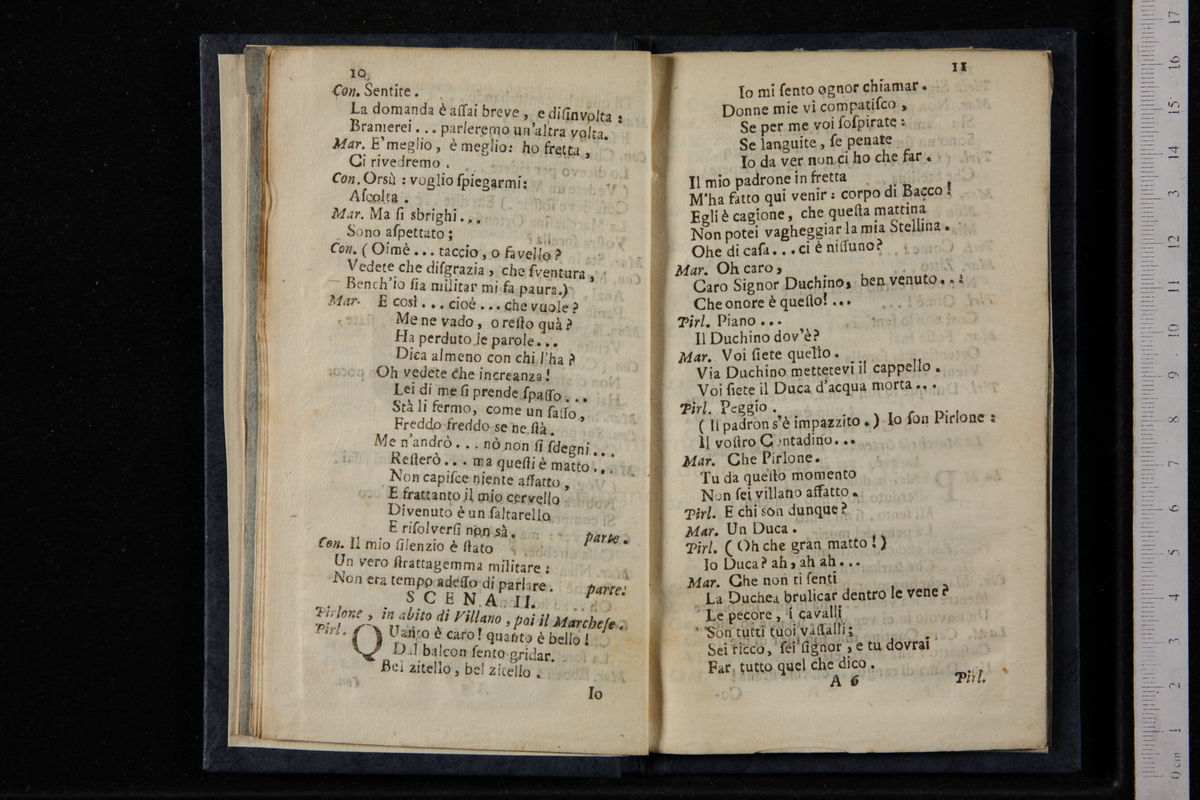 10
Con. Sentite.
La domanda è aſſai breve, e diſinvolta:
Bramerei... parleremo un'altra volta.
Mar. E' meglio, è meglio: ho fretta,
Ci rivedremo.
Con. Orsù: voglio ſpiegarmi:
Aſcolta.
Mar. Ma ſi sbrighi...
Sono aſpettato;
Con. (Oimè... taccio, o favello?
Vedete che diſgrazia, che ſventura,
Bench'io ſia militar mi fa paura.)
Mar. E così... cioè... che vuole?
Me ne vado, o reſto quà?
Ha perduto le parole...
Dica almeno con chi l'ha?
Oh vedete che increanza!
Lei di me ſi prende ſpaſſo...
Stà lì fermo, come un ſaſſo,
Freddo freddo se ne ſtà.
Me n'andrò... nò non ſi ſdegni...
Reſterò... ma queſti è matto...
Non capiſce niente affatto,
E frattanto il mio cervello
Divenuto è un ſaltarello
E riſolverſi non sà. parte.
Con. Il mio ſilenzio è ſtato
Un vero ſtrattagemma militare:
Non era tempo adeſſo di parlare. parte.
SCENA II.
Pirlone, in abito di Villano, poi il Marcheſe.
Pirl. QUanto è caro! quanto è bello!
Dal balcon ſento gridar.
Bel zitello, bel zitello.
Io
11
Io mi ſento ognor chiamar.
Donne mie vi compatiſco,
Se per me voi ſoſpirate:
Se languite, ſe penate
Io da ver non ci ho che far.
Il mio padrone in fretta
M'ha fatto qui venir: corpo di Bacco!
Egli è cagione, che queſta mattina
Non potei vagheggiar la mia Stellina.
Ohe di caſa... ci è niſſuno?
Mar. Oh caro,
Caro Signor Duchino, ben venuto...:
Che onore è queſto!...
Pirl. Piano...
Il Duchino dov'è?
Mar. Voi ſiete quello.
Via Duchino mettetevi il cappello.
Voi ſiete il Duca d'acqua morta...
Pirl. Peggio.
(Il padron s'è impazzito.) Io ſon Pirlone:
Il voſtro Contadino...
Mar. Che Pirlone.
Tu da queſto momento
Non ſei villano affatto.
Pirl. E chi son dunque?
Mar. Un Duca.
Pirl. (Oh che gran matto!)
Io Duca? ah, ah ah...
Mar. Che non ti ſenti
La Duchea brulicar dentro le vene?
Le pecore, i cavalli
Son tutti tuoi vaſſalli;
Sei ricco, ſei ſignor, e tu dovrai
Far tutto quel che dico.
A 6 Pirl.